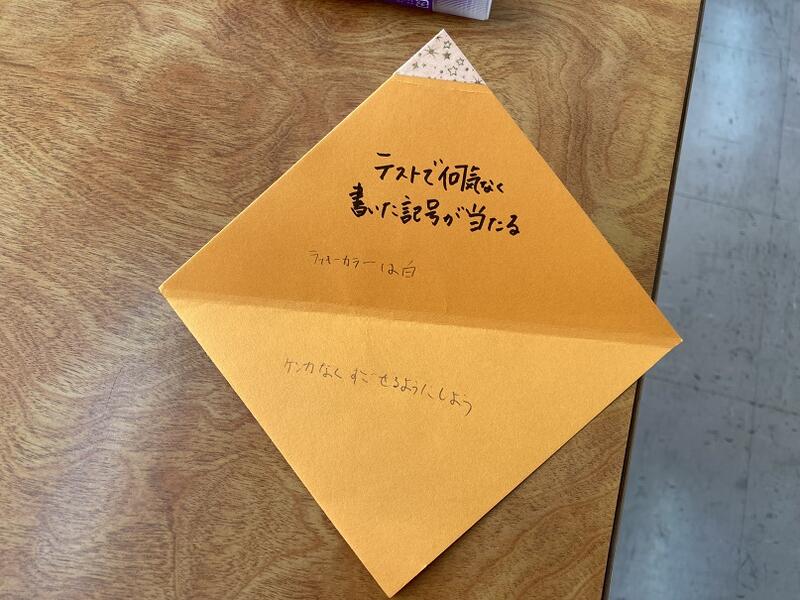 テストで何気なく
書いた記号が当たる
ラッキーカラーは白
ケンカなくすごせるようにしよう